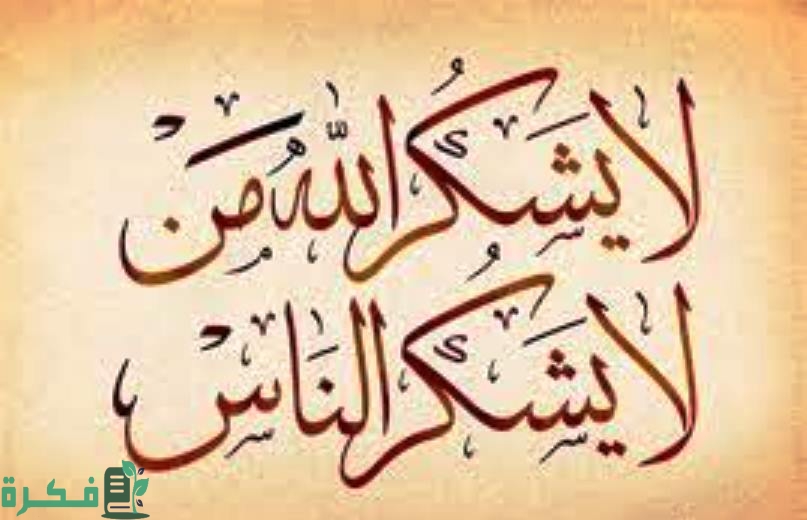 لا يشكر الله من
لا يشكر الناس
فكرة